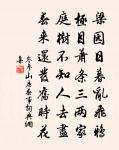 梁园日暮乱飞鸦
极目萧条三两家
庭树不知人去尽
春来还发旧时花
岑参山房春事诗词典网
某